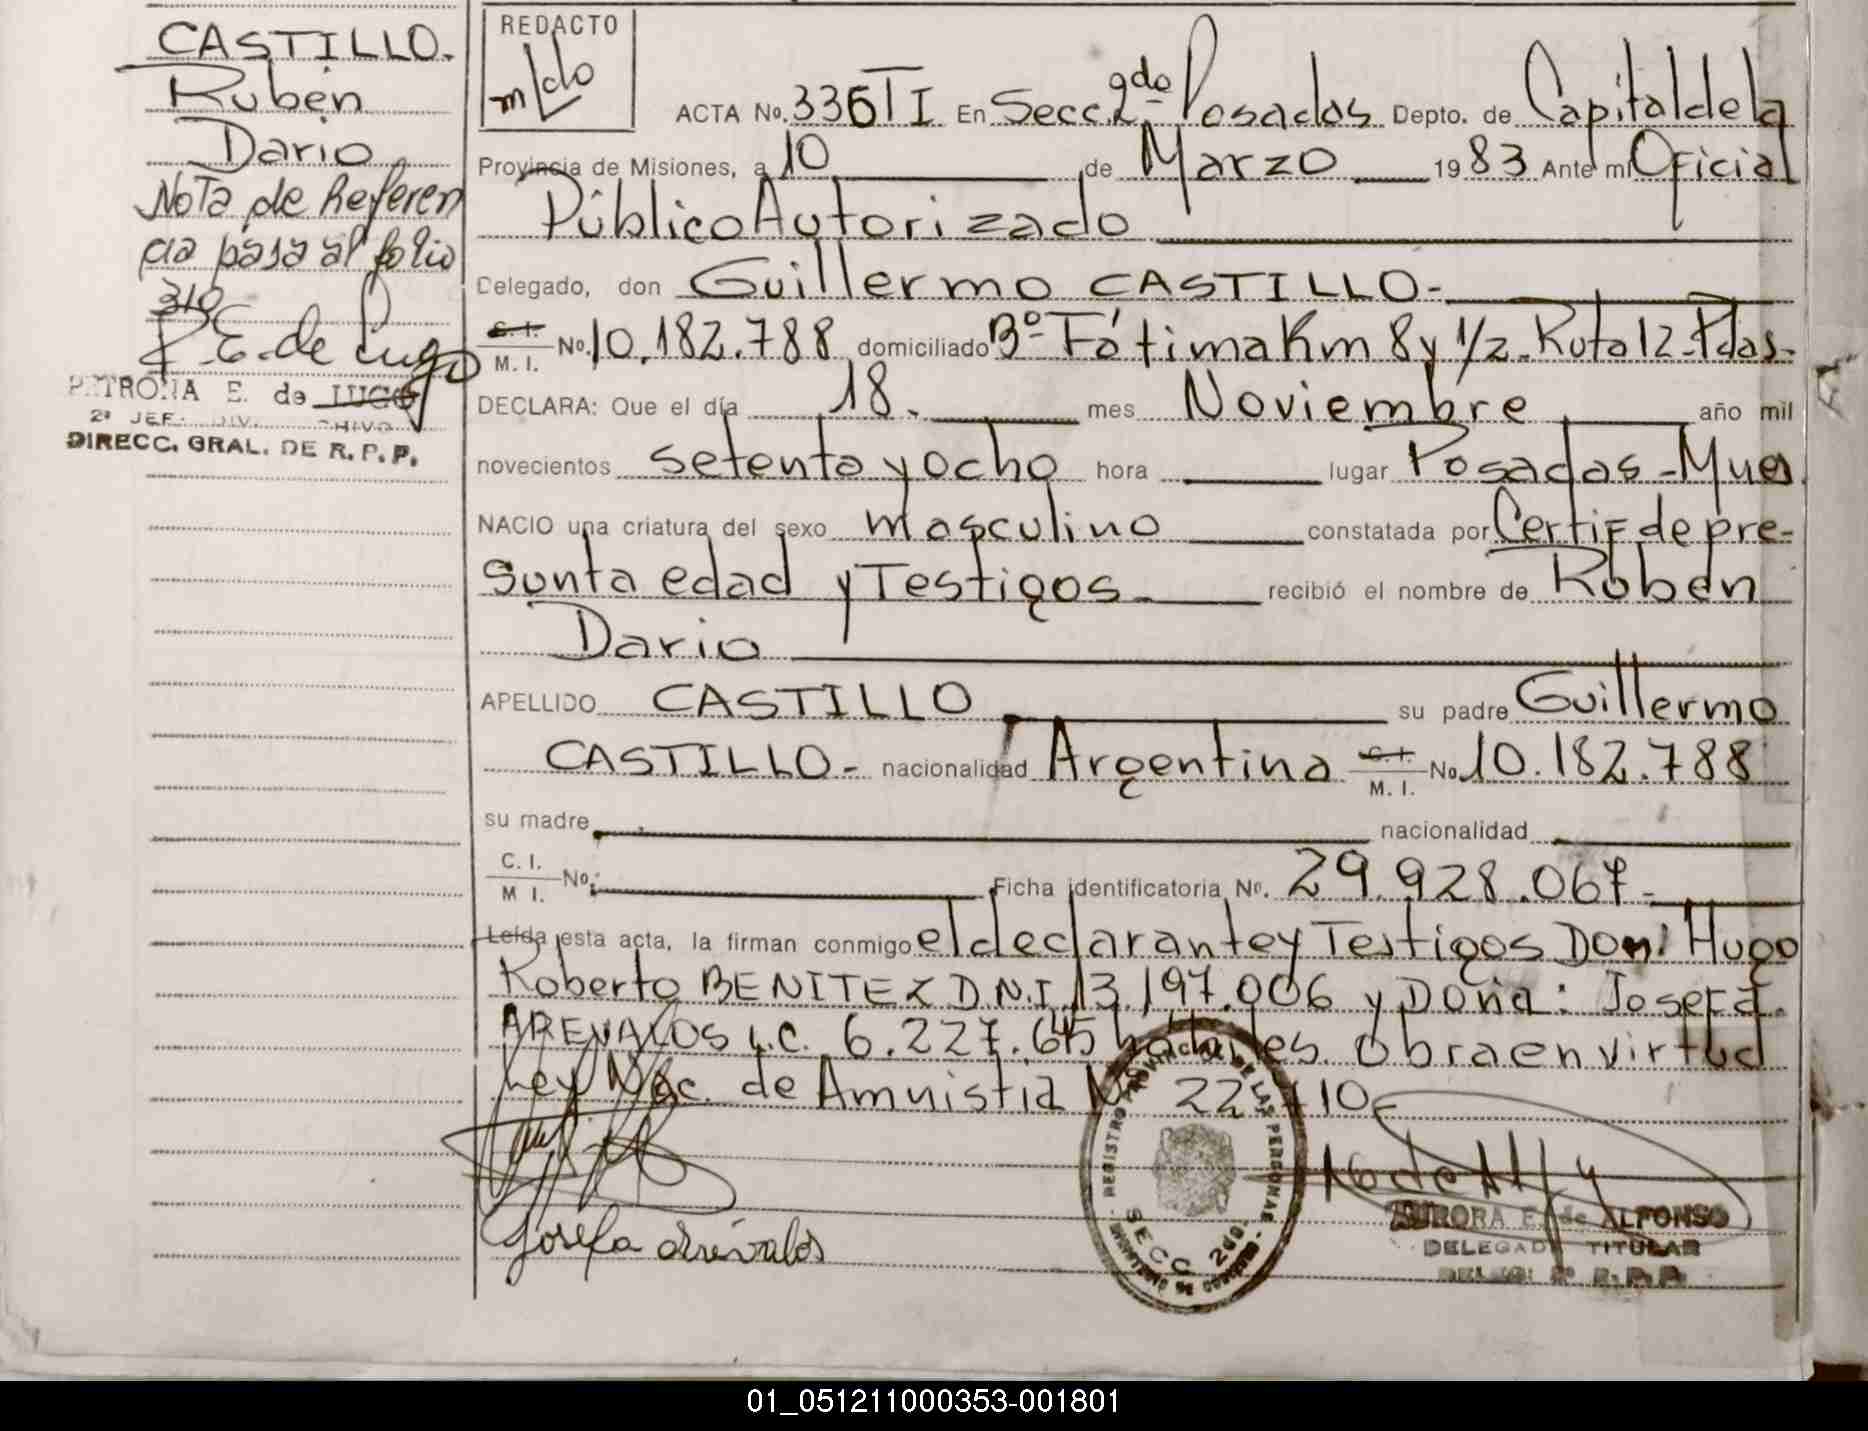 CASTILLO.
Rubén
Dario
Nota de Referen
cia pasa al folio
310
P. E. de Lugo
PETRONA E. de LUGO
2º JEF. DIV. ARCHIVO
DIRECC. GRAL. DE R. P. P.
REDACTO
ACTA No. 336 T I En Secc. 2da. Posadas Depto. de Capital de la
Provincia de Misiones, a 10 de Marzo 1983 Ante mi Oficial
Público Autorizado
Delegado, don Guillermo CASTILLO-
C. I.
M. I. No. 10.182.788 domiciliado Bº Fátima Km 8 y 1/2 - Ruta 12 - Pdas.
DECLARA: Que el día 18. mes Noviembre año mil
novecientos setenta y ocho hora lugar Posadas - Mnes
NACIO una criatura del sexo masculino constatada por Certif de pre-
sunta edad y Testigos recibió el nombre de Rubén
Dario
APELLIDO CASTILLO su padre Guillermo
CASTILLO - nacionalidad Argentina C. I. M. I. No. 10.182.788
su madre nacionalidad
C. I.
M I. No. Ficha identificatoria No. 29.928.067-
Leída esta acta, la firman conmigo el declarante y Testigos Don: Hugo
Roberto BENITEZ D.N.I 13.197.006 y Doña: Josefa
AREVALOS L.C. 6.227.645 hábiles. Obra en virtud
Ley Nac. de Amnistia Nº 22.410-
REGISTRO PROVINCIAL DE LAS PERSONAS
SECC 2da.
Josefa Arévalos
AURORA E. de ALFONSO
DELEGADA TITULAR
DELEG. 2º R. P. P.
01_051211000353-001801